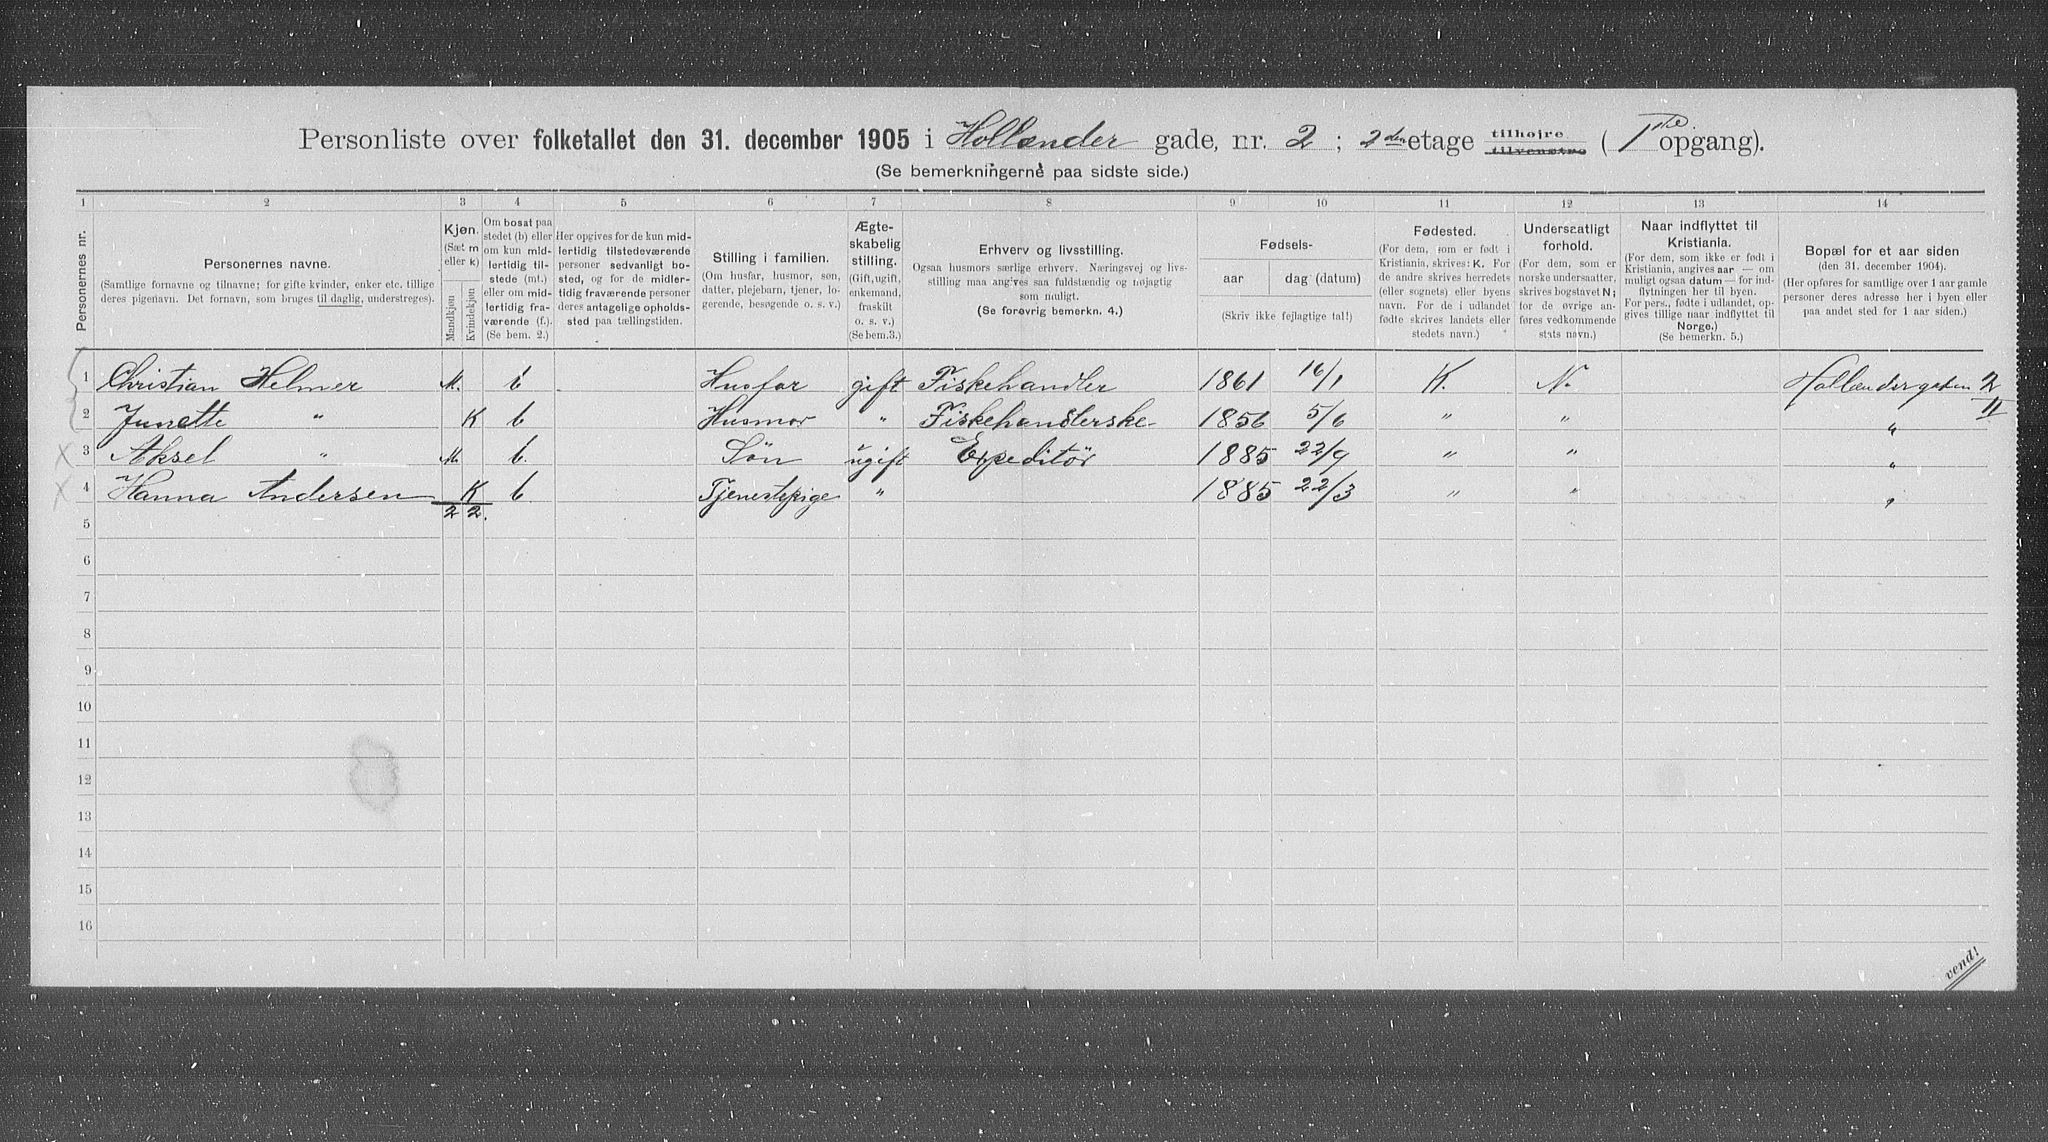 Personliste over folketallet den 31. december 1905 i Hollænder gade, nr. 2 ; 2den etage tilhøjre tilvenstre ( 1ste opgang).
(Se bemerkningerne paa sidste side.)
1 2 3 4 5 6 7 8 9 10 11 12 13 14
Personernes nr.
Personernes navne.
(Samtlige fornavne og tilnavne; for gifte kvinder, enker etc. tillige deres pigenavn. Det fornavn, som bruges til daglig, understreges).
Kjøn.
(Sæt m eller k)
Mandkjøn
Kvindekjøn
Om bosat paa stedet (b) eller om kun midlertidig tilstede (mt.) eller om midlertidig fraværende (f.). (Se bem. 2.)
Her opgives for de kun midlertidig tilstedeværende personer sedvanligt bosted, og for de midlertidig fraværende personer deres antagelige opholdssted paa tællingstiden.
Stilling i familien.
(Om husfar, husmor, søn, datter, plejebarn, tjener, logerende, besøgende o. s. v.)
Ægteskabelig stilling.
(Gift, ugift, enkemand, fraskilt o. s. v.)
(Se bem.3.)
Erhverv og livsstilling.
Ogsaa husmors særlige erhverv. Næringsvej og livsstilling maa angives saa fuldstændig og nøjagtig som muligt.
(Se forøvrig bemerkn. 4.)
Fødsels-
aar
dag (datum)
(Skriv ikke fejlagtige tal!)
Fødested.
(For dem, som er født i Kristiania, skrives: K. For de andre skrives herredets (eller sognets) eller byens navn. For de i udlandet fødte skrives landets eller stedets navn.)
Undersaatligt forhold.
(For dem, som er norske undersaatter, skrives bogstavet N; for de øvrige anføres vedkommende stats navn.)
Naar indflyttet til Kristiania.
(For dem, som ikke er født i Kristiania, angives aar — om muligt ogsaa datum — for indflytningen her til byen. For pers., fødte i udlandet, opgives tillige naar indflyttet til Norge.)
(Se bemerkn. 5.)
Bopæl for et aar siden
(den 31. december 1904).
(Her opføres for samtlige over 1 aar gamle personer deres adresse her i byen eller paa andet sted for 1 aar siden.)
1 Christian Helmer M. b Husfar gift Fiskehandler 1861 16/1 K. N. Hollændergaten 2 II
2 Junette " K b Husmor " Fiskehandlerske 1856 5/6 " " "
3 Aksel " M. b. Søn ugift Expeditør 1885 22/9 " " "
4 Hanna Andersen K b Tjenestepige " 1885 22/3 " " "
2 2.
5
6
7
8
9
10
11
12
13
14
15
16
vend!